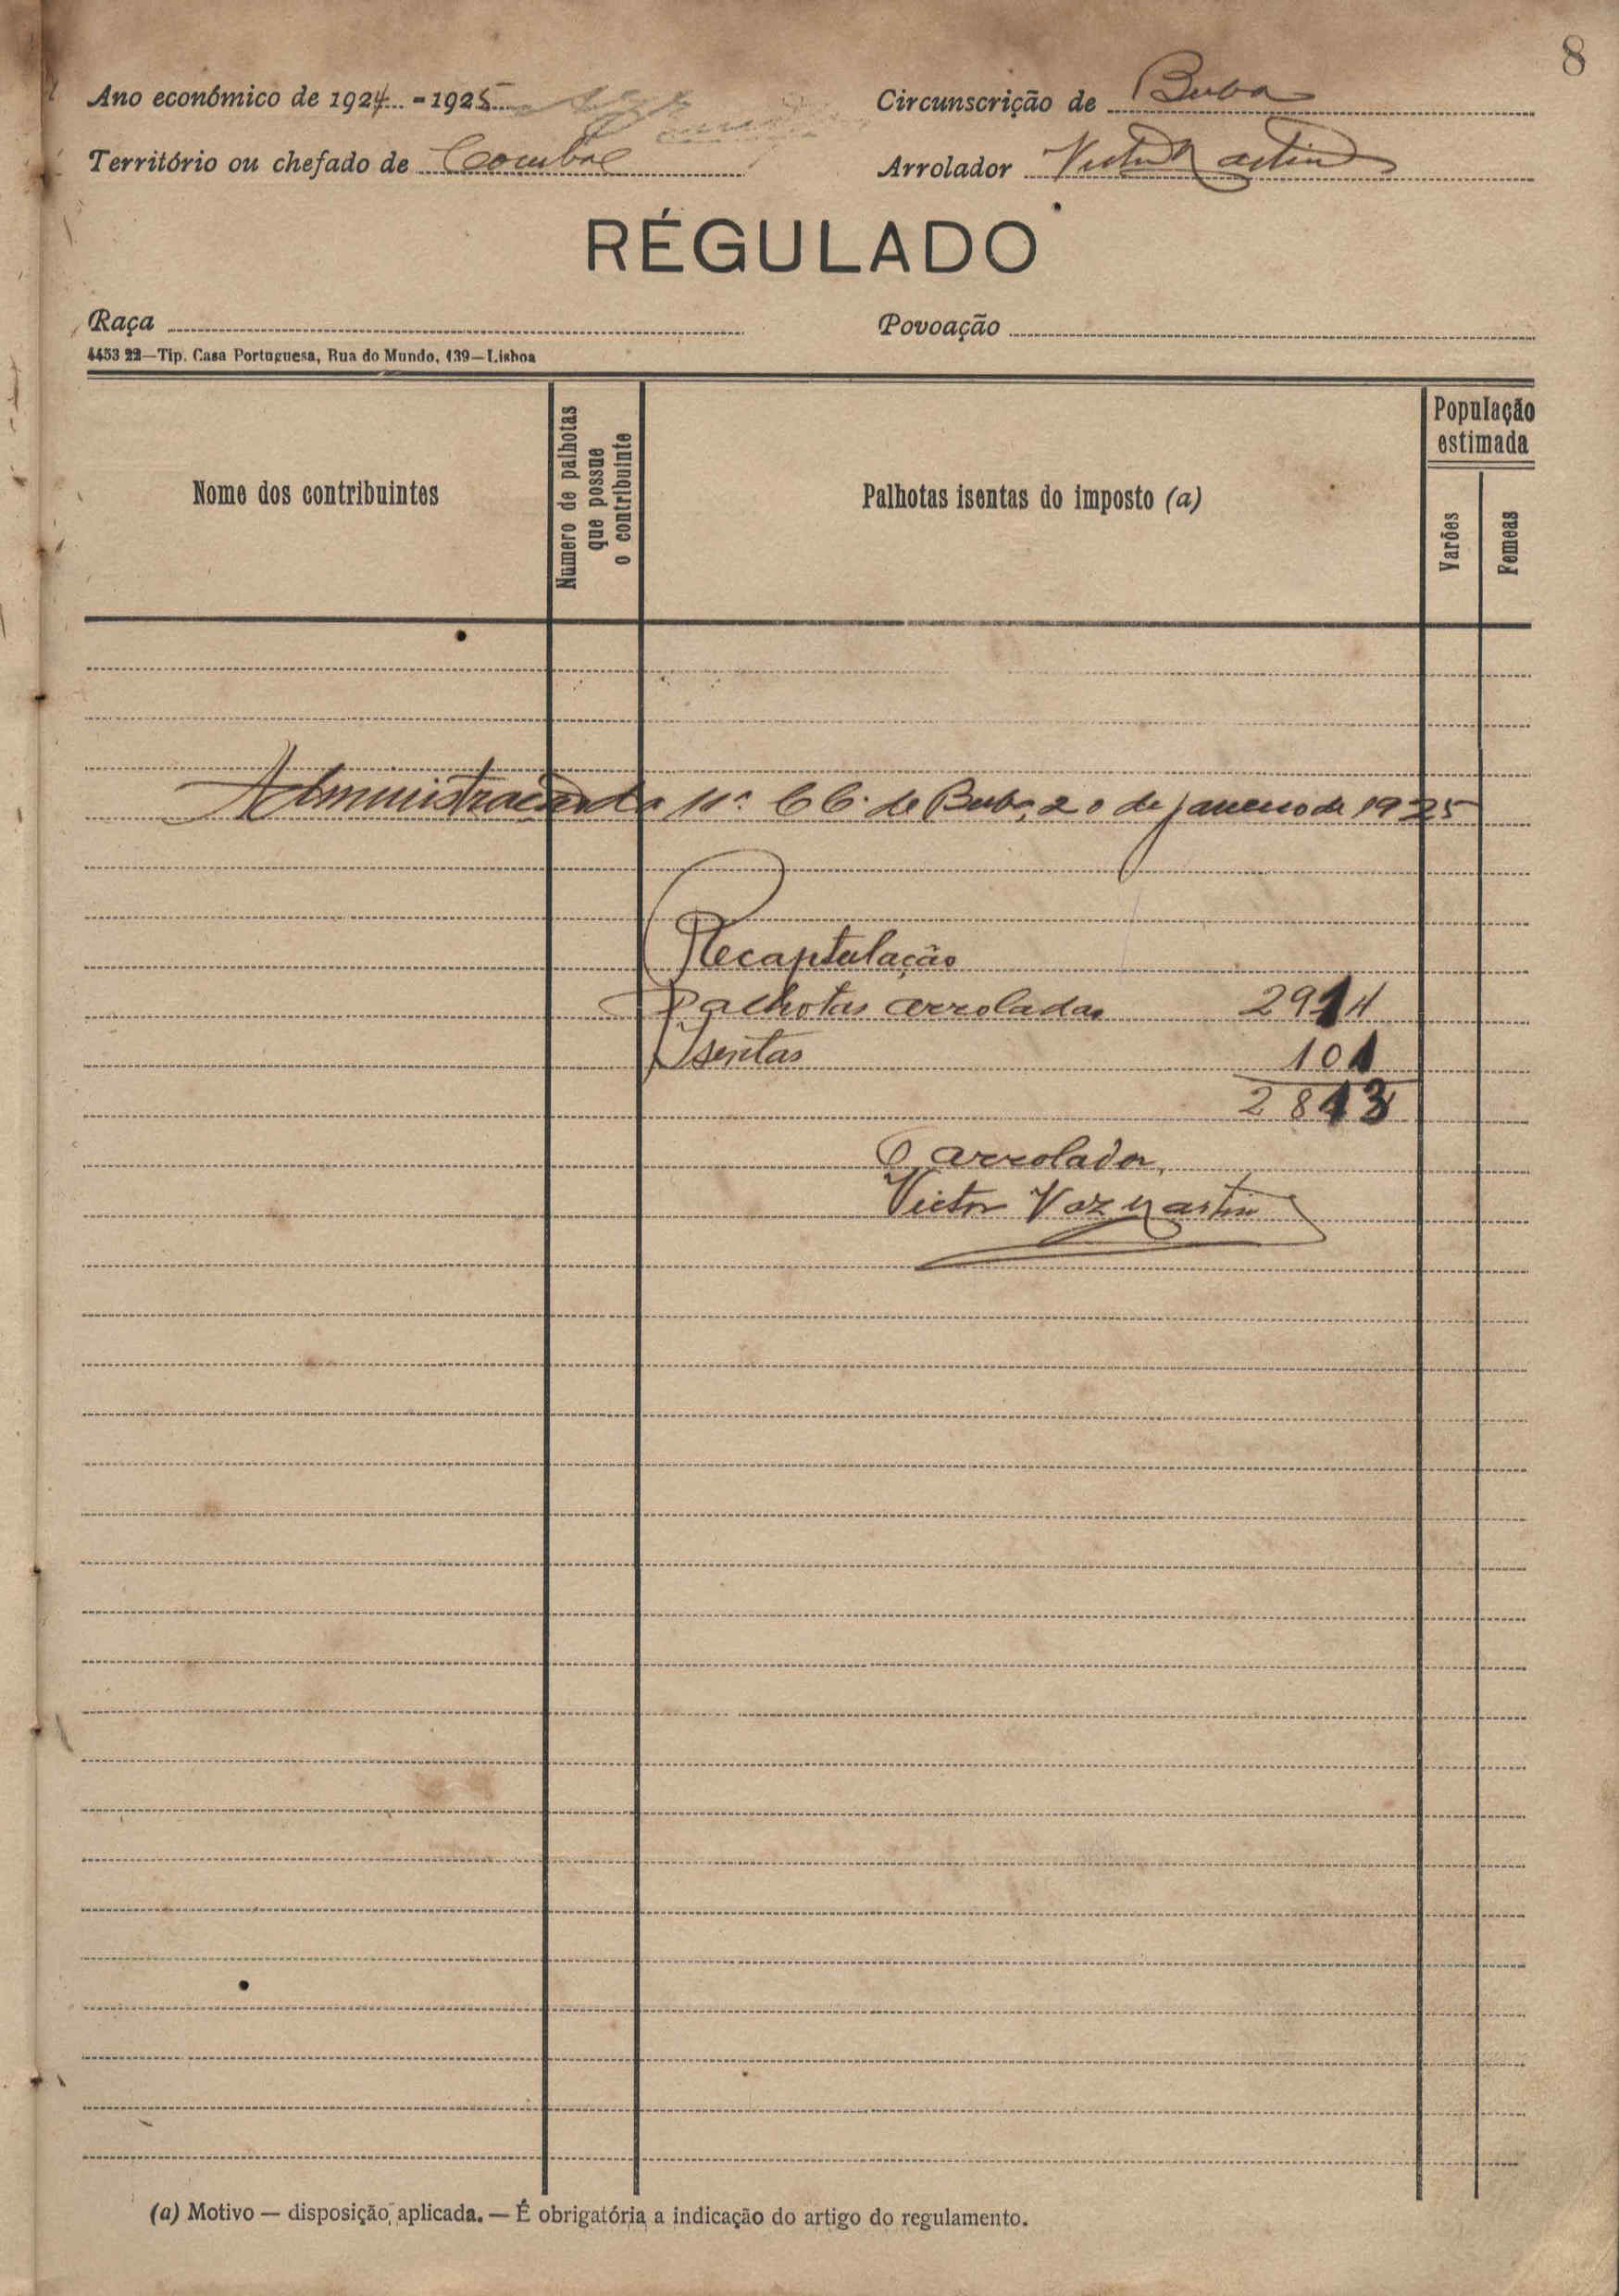 8
Ano económico de 1924 - 1925
Circunscrição de Buba
Território ou chefado de
Arrolador Victor Martins
RÉGULADO
Raça
Povoação
4453 22—Tip. Casa Portuguesa, Rua do Mundo, 139—Lisboa
Nome dos contribuintes
Número de palhotas que possue o contribuinte
Palhotas isentas do imposto (a)
População estimada
Varões
Femeas
Administração da de Buba, 20 de janeiro de 1925
Recaptulação
Palhotas arroladas 2914
Isentas 101
2813
O arrolador,
Victor Vaz Martins
(a) Motivo — disposição aplicada. — É obrigatória a indicação do artigo do regulamento.